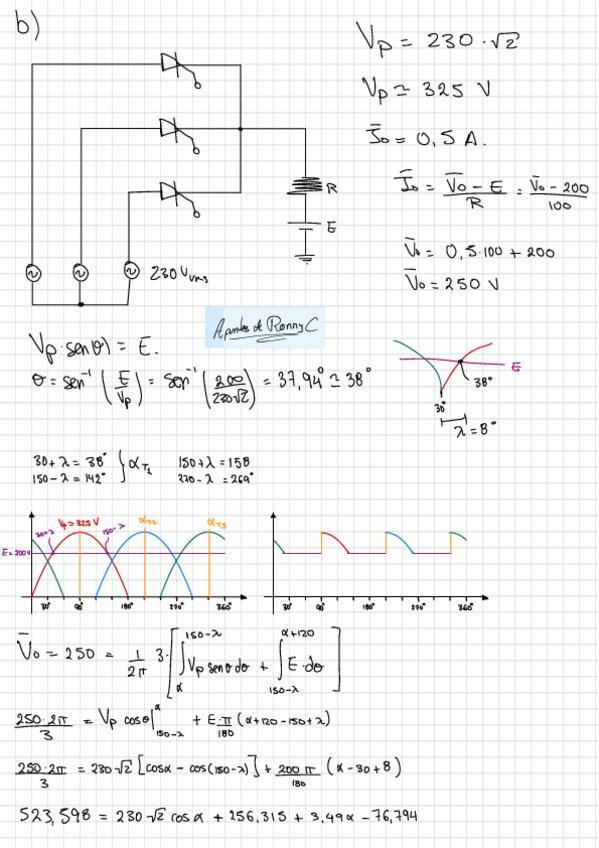 b)
Vp = 230 · √2
Vp ≃ 325 V
Īo = 0,5 A.
Īo = (V̄o - E)/R = (V̄o - 200)/100
V̄o = 0,5·100 + 200
V̄o = 250 V
R
E
230 Vrms
Apuntes de Ronny C
Vp·senθ) = E.
θ = sen⁻¹ (E/Vp) = sen⁻¹ (200/230√2) = 37,94° ≃ 38°
E
38°
30°
λ = 8°
30 + λ = 38° } αT1 150 + λ = 158
150 - λ = 142° 270 - λ = 269°
30+λ Vp ≃ 325 V 150-λ αT2 αT3
E = 200V
30° 90° 180° 270° 360°
30° 90° 180° 270° 360°
V̄o = 250 = 1/2π · 3 · [∫_α^{150-λ} Vp senθ dθ + ∫_{150-λ}^{α+120} E·dθ]
250·2π/3 = Vp cosθ|_{150-λ}^α + E·π/180 (α+120-150+λ)
250·2π/3 = 230√2 [cosα - cos(150-λ)] + 200π/180 (α - 30 + 8)
523,598 = 230√2 cosα + 256,315 + 3,49α - 76,794